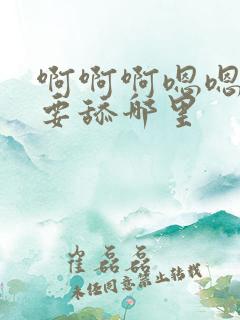 啊啊啊嗯嗯
要舔那里
崔磊磊
未经同意禁止转载